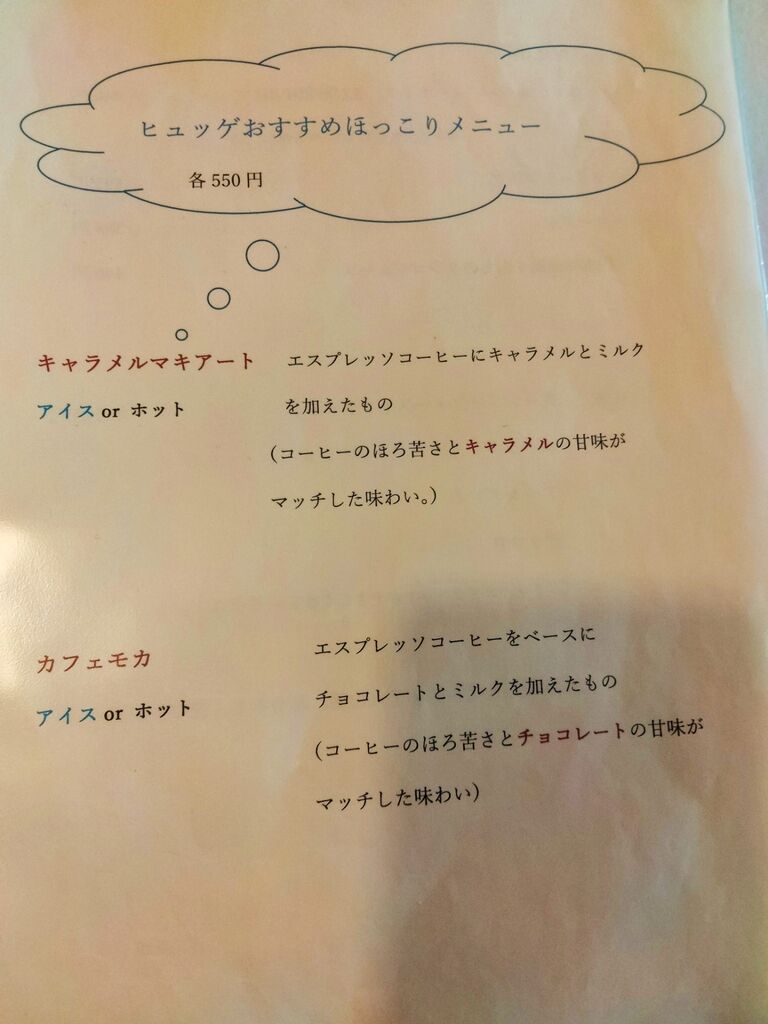 ヒュッゲおすすめほっこりメニュー
各550円
キャラメルマキアート エスプレッソコーヒーにキャラメルとミルク
アイス or ホット を加えたもの
(コーヒーのほろ苦さとキャラメルの甘味が
マッチした味わい。)
カフェモカ エスプレッソコーヒーをベースに
アイス or ホット チョコレートとミルクを加えたもの
(コーヒーのほろ苦さとチョコレートの甘味が
マッチした味わい)